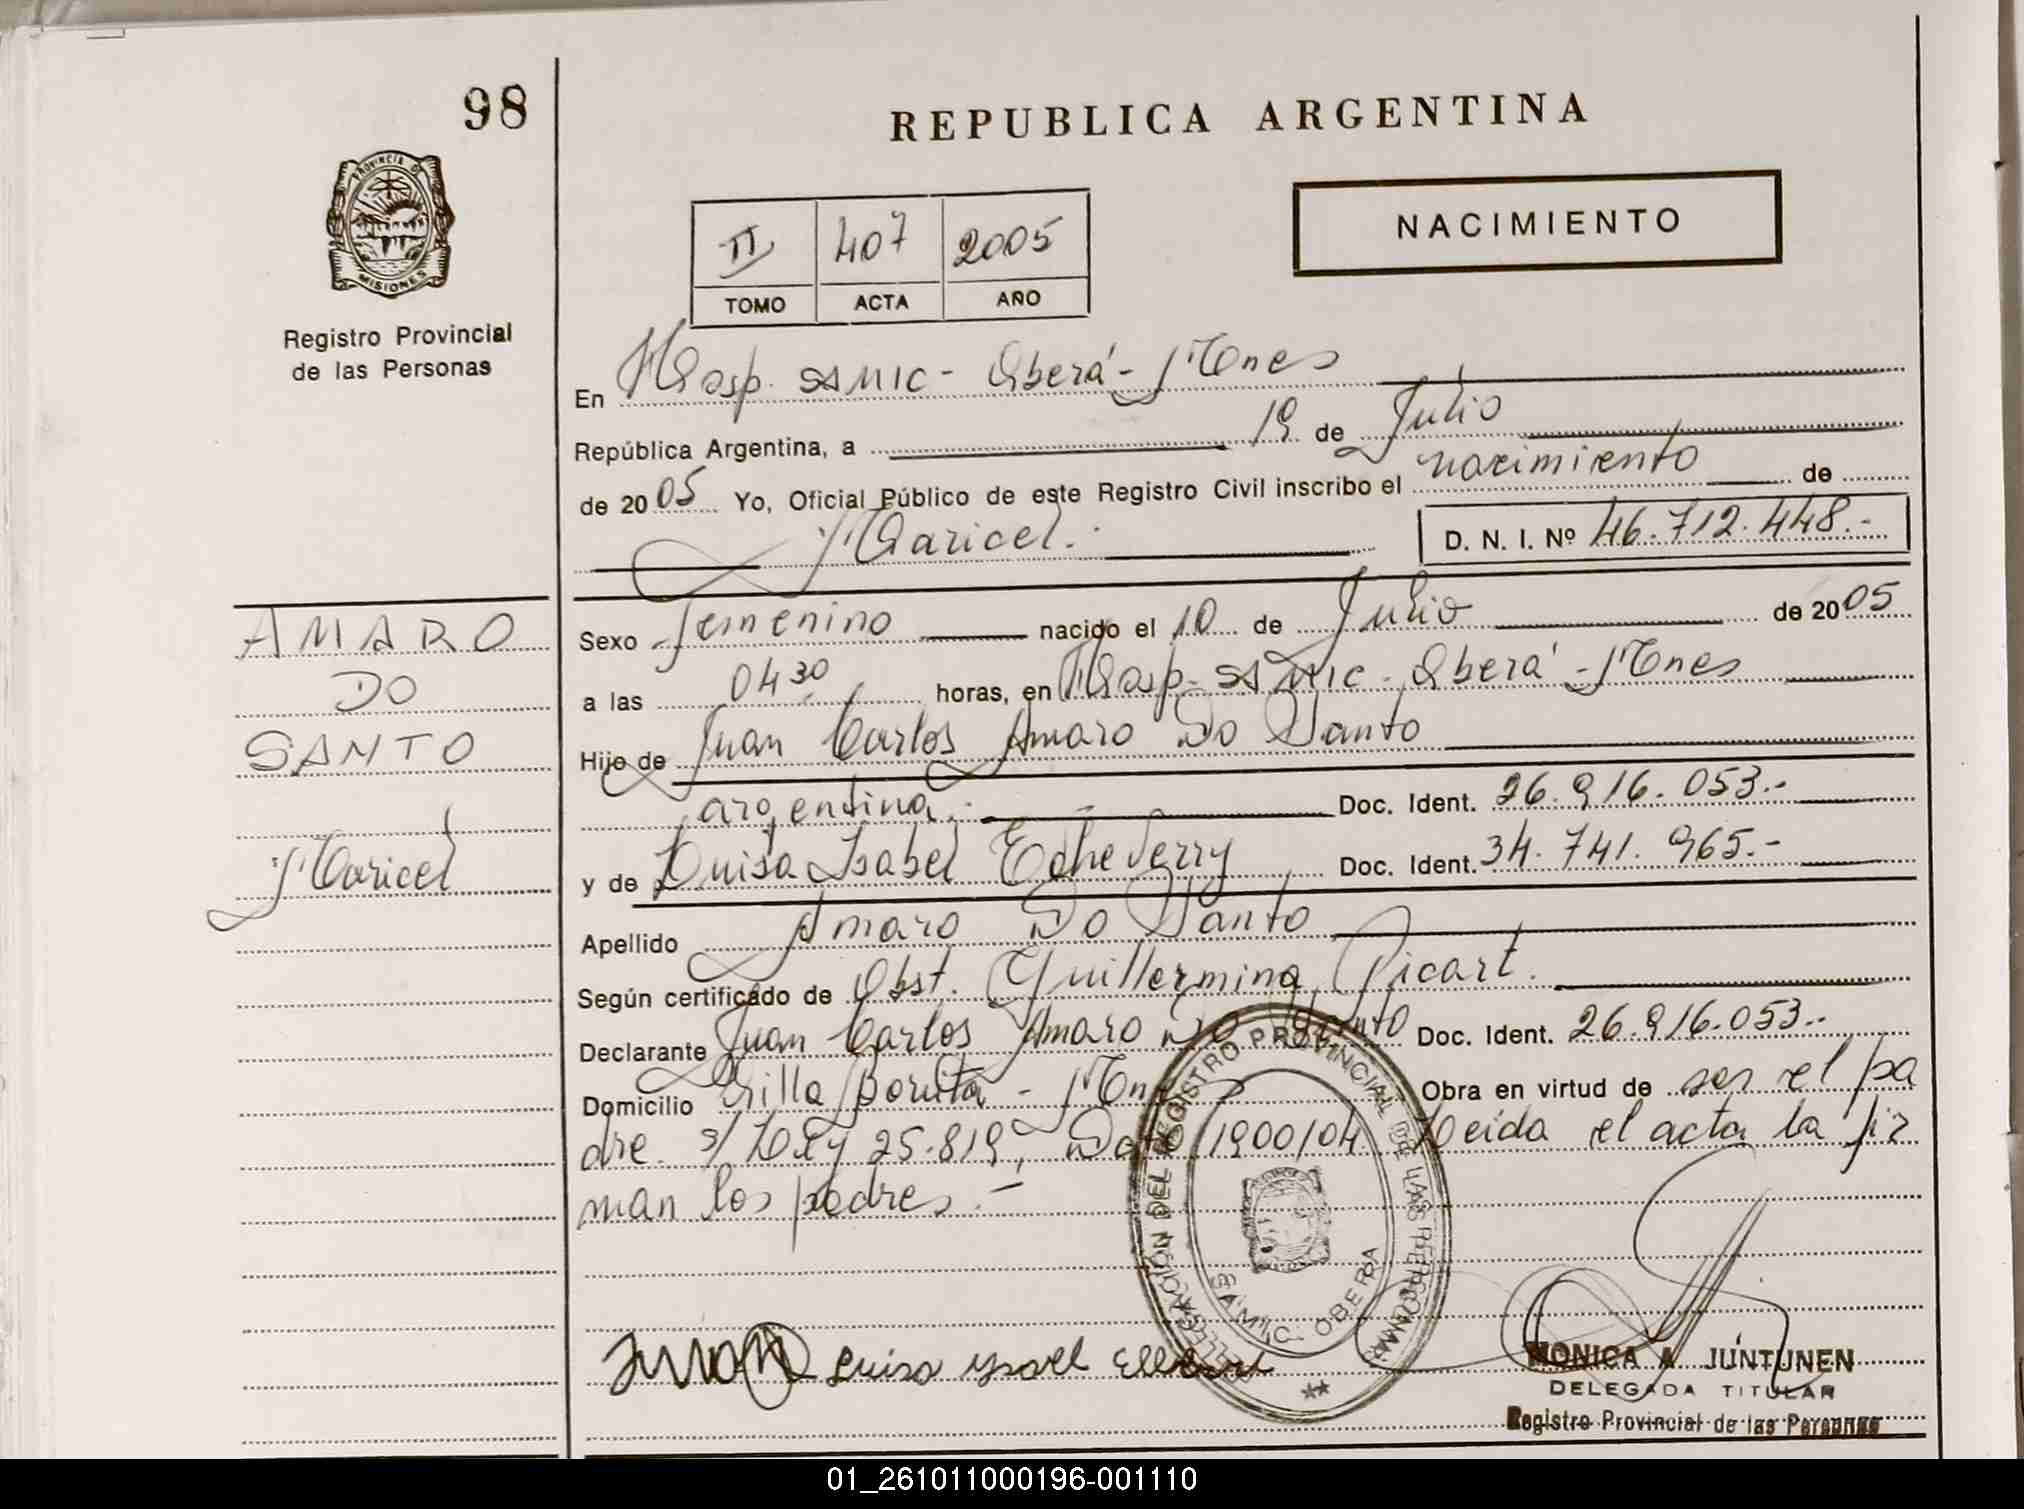 98
REPUBLICA ARGENTINA
PROVINCIA DE
MISIONES
Registro Provincial
de las Personas
NACIMIENTO
II 407 2005
TOMO ACTA AÑO
En Hosp. SAMIC - Oberá - Mnes
República Argentina, a 19 de Julio
de 20 05 Yo, Oficial Público de este Registro Civil inscribo el nacimiento de
Maricel.
D. N. I. Nº 46.712.448.-
AMARO
DO
SANTO
Maricel
Sexo femenino nacido el 10 de Julio de 20 05
a las 04 30 horas, en Hosp. SAMIC - Oberá - Mnes
Hijo de Juan Carlos Amaro Do Santo
argentina. Doc. Ident. 26.916.053.-
y de Luisa Isabel Echeverry Doc. Ident. 34.741.965.-
Apellido Amaro Do Santo
Según certificado de Obst. Guillermina Picart.
Declarante Juan Carlos Amaro Do Santo Doc. Ident. 26.916.053.-
Domicilio Villa Bonita - Mnes Obra en virtud de ser el pa
dre. s/ Ley 25.819, Dto 1900/04. Leida el acta la fir
man los padres. -
DELEGACIÓN DEL REGISTRO PROVINCIAL DE LAS PERSONAS
SAMIC - OBERA
Juan Luisa ysavel
MONICA A. JUNTUNEN
DELEGADA TITULAR
Registro Provincial de las Personas
01_261011000196-001110